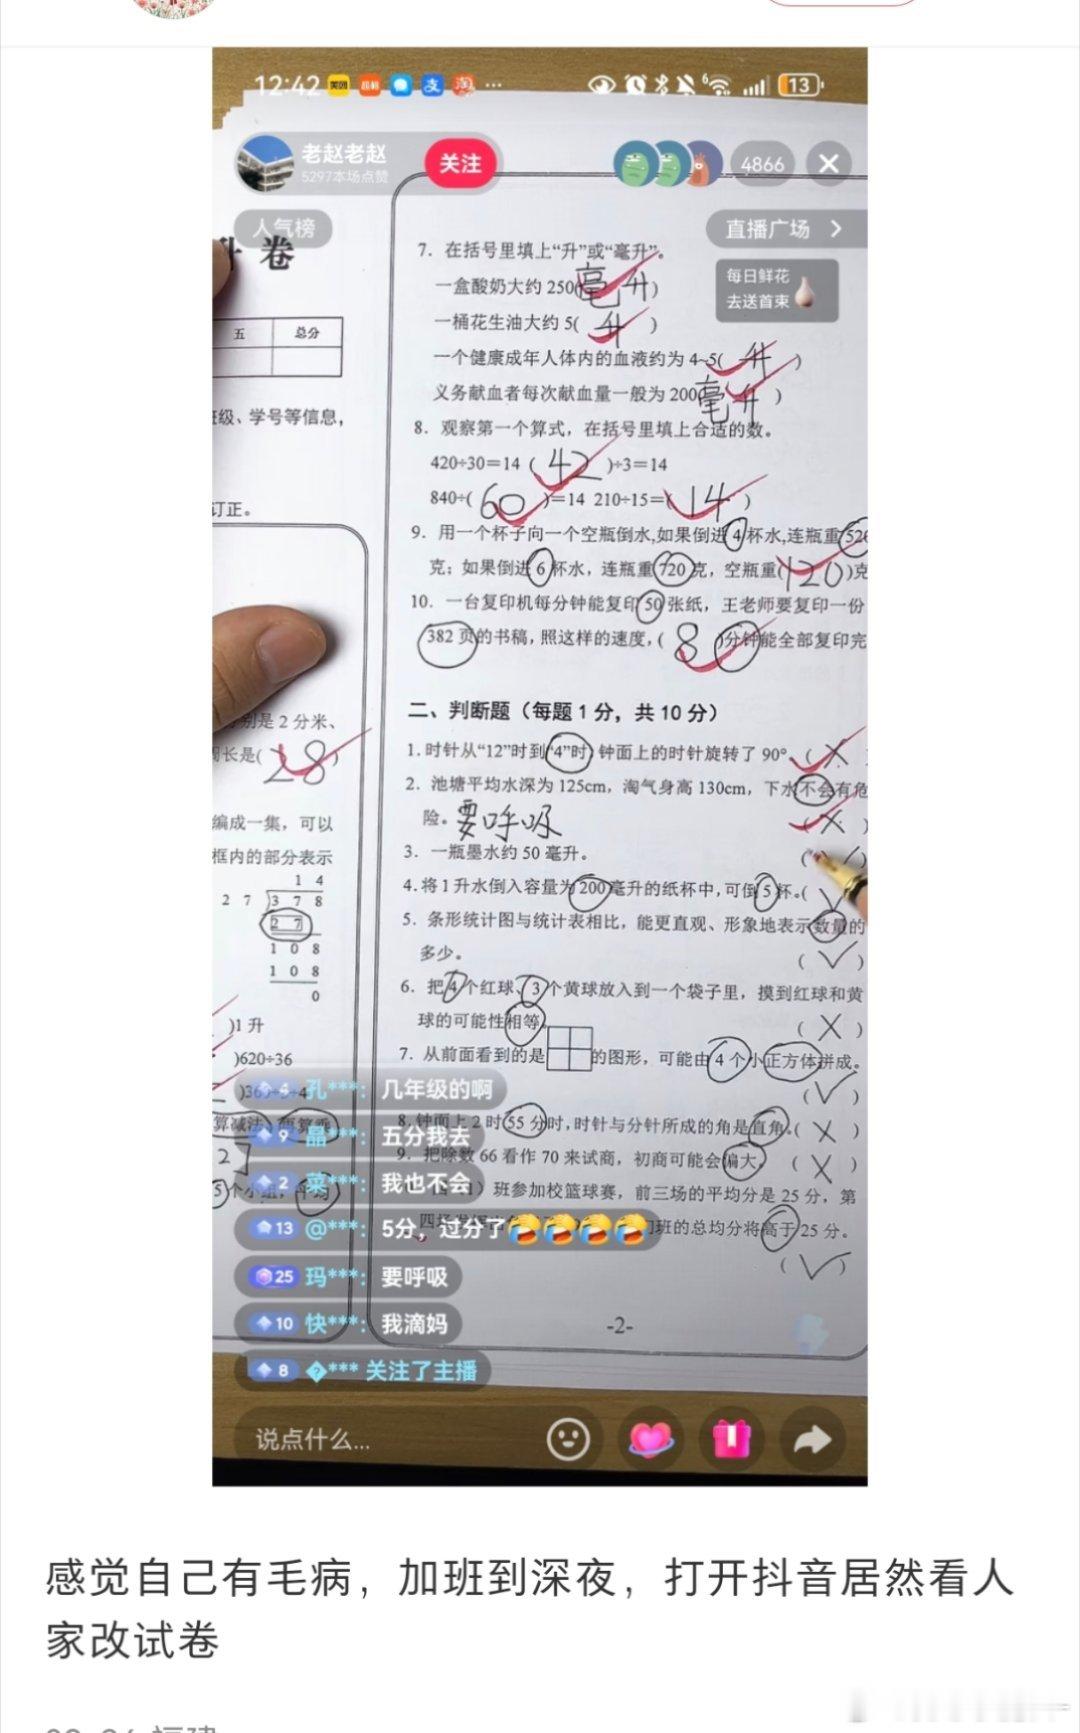 12:42
13
老赵老赵
5297本场点赞
关注
4866
人气榜
直播广场
每日鲜花
去送首束
卷
五 总分
级、学号等信息，
订正。
别是2分米、
周长是(28)
编成一集，可以
框内的部分表示
1 4
2 7 3 7 8
2 7
1 0 8
1 0 8
0
)1升
)620÷36
7. 在括号里填上“升”或“毫升”。
一盒酸奶大约250(毫升)
一桶花生油大约5(升)
一个健康成年人体内的血液约为4~5(升)
义务献血者每次献血量一般为200(毫升)
8. 观察第一个算式，在括号里填上合适的数。
420÷30=14 (42)÷3=14
840÷(60)=14 210÷15=(14)
9. 用一个杯子向一个空瓶倒水,如果倒进4杯水,连瓶重520
克；如果倒进6杯水，连瓶重720克，空瓶重(120)克
10. 一台复印机每分钟能复印50张纸，王老师要复印一份
382页的书稿，照这样的速度，(8)分钟能全部复印完
二、判断题（每题1分，共10分）
1.时针从“12”时到“4”时，钟面上的时针旋转了90°。(X
2. 池塘平均水深为125cm，淘气身高130cm，下水不会有危
险。要呼吸 (X)
3. 一瓶墨水约50毫升。 (√)
4.将1升水倒入容量为200毫升的纸杯中,可倒5杯。(√
5. 条形统计图与统计表相比，能更直观、形象地表示数量的
多少。 (√)
6. 把4个红球、3个黄球放入到一个袋子里，摸到红球和黄
球的可能性相等。 (X)
7. 从前面看到的是的图形，可能由4个小正方体拼成。
(√)
8.钟面上2时55分时,时针与分针所成的角是直角。(X)
9. 把除数66看作70来试商，初商可能会偏大。(X)
）班参加校篮球赛，前三场的平均分是25分，第
四场 班的总均分将高于25分。
(√)
-2-
4 孔***： 几年级的啊
9 晶***： 五分我去
2 菜***： 我也不会
13 @***： 5分，过分了😂😂😂😂
25 玛***： 要呼吸
10 快***： 我滴妈
8 *** 关注了主播
说点什么...
感觉自己有毛病，加班到深夜，打开抖音居然看人
家改试卷